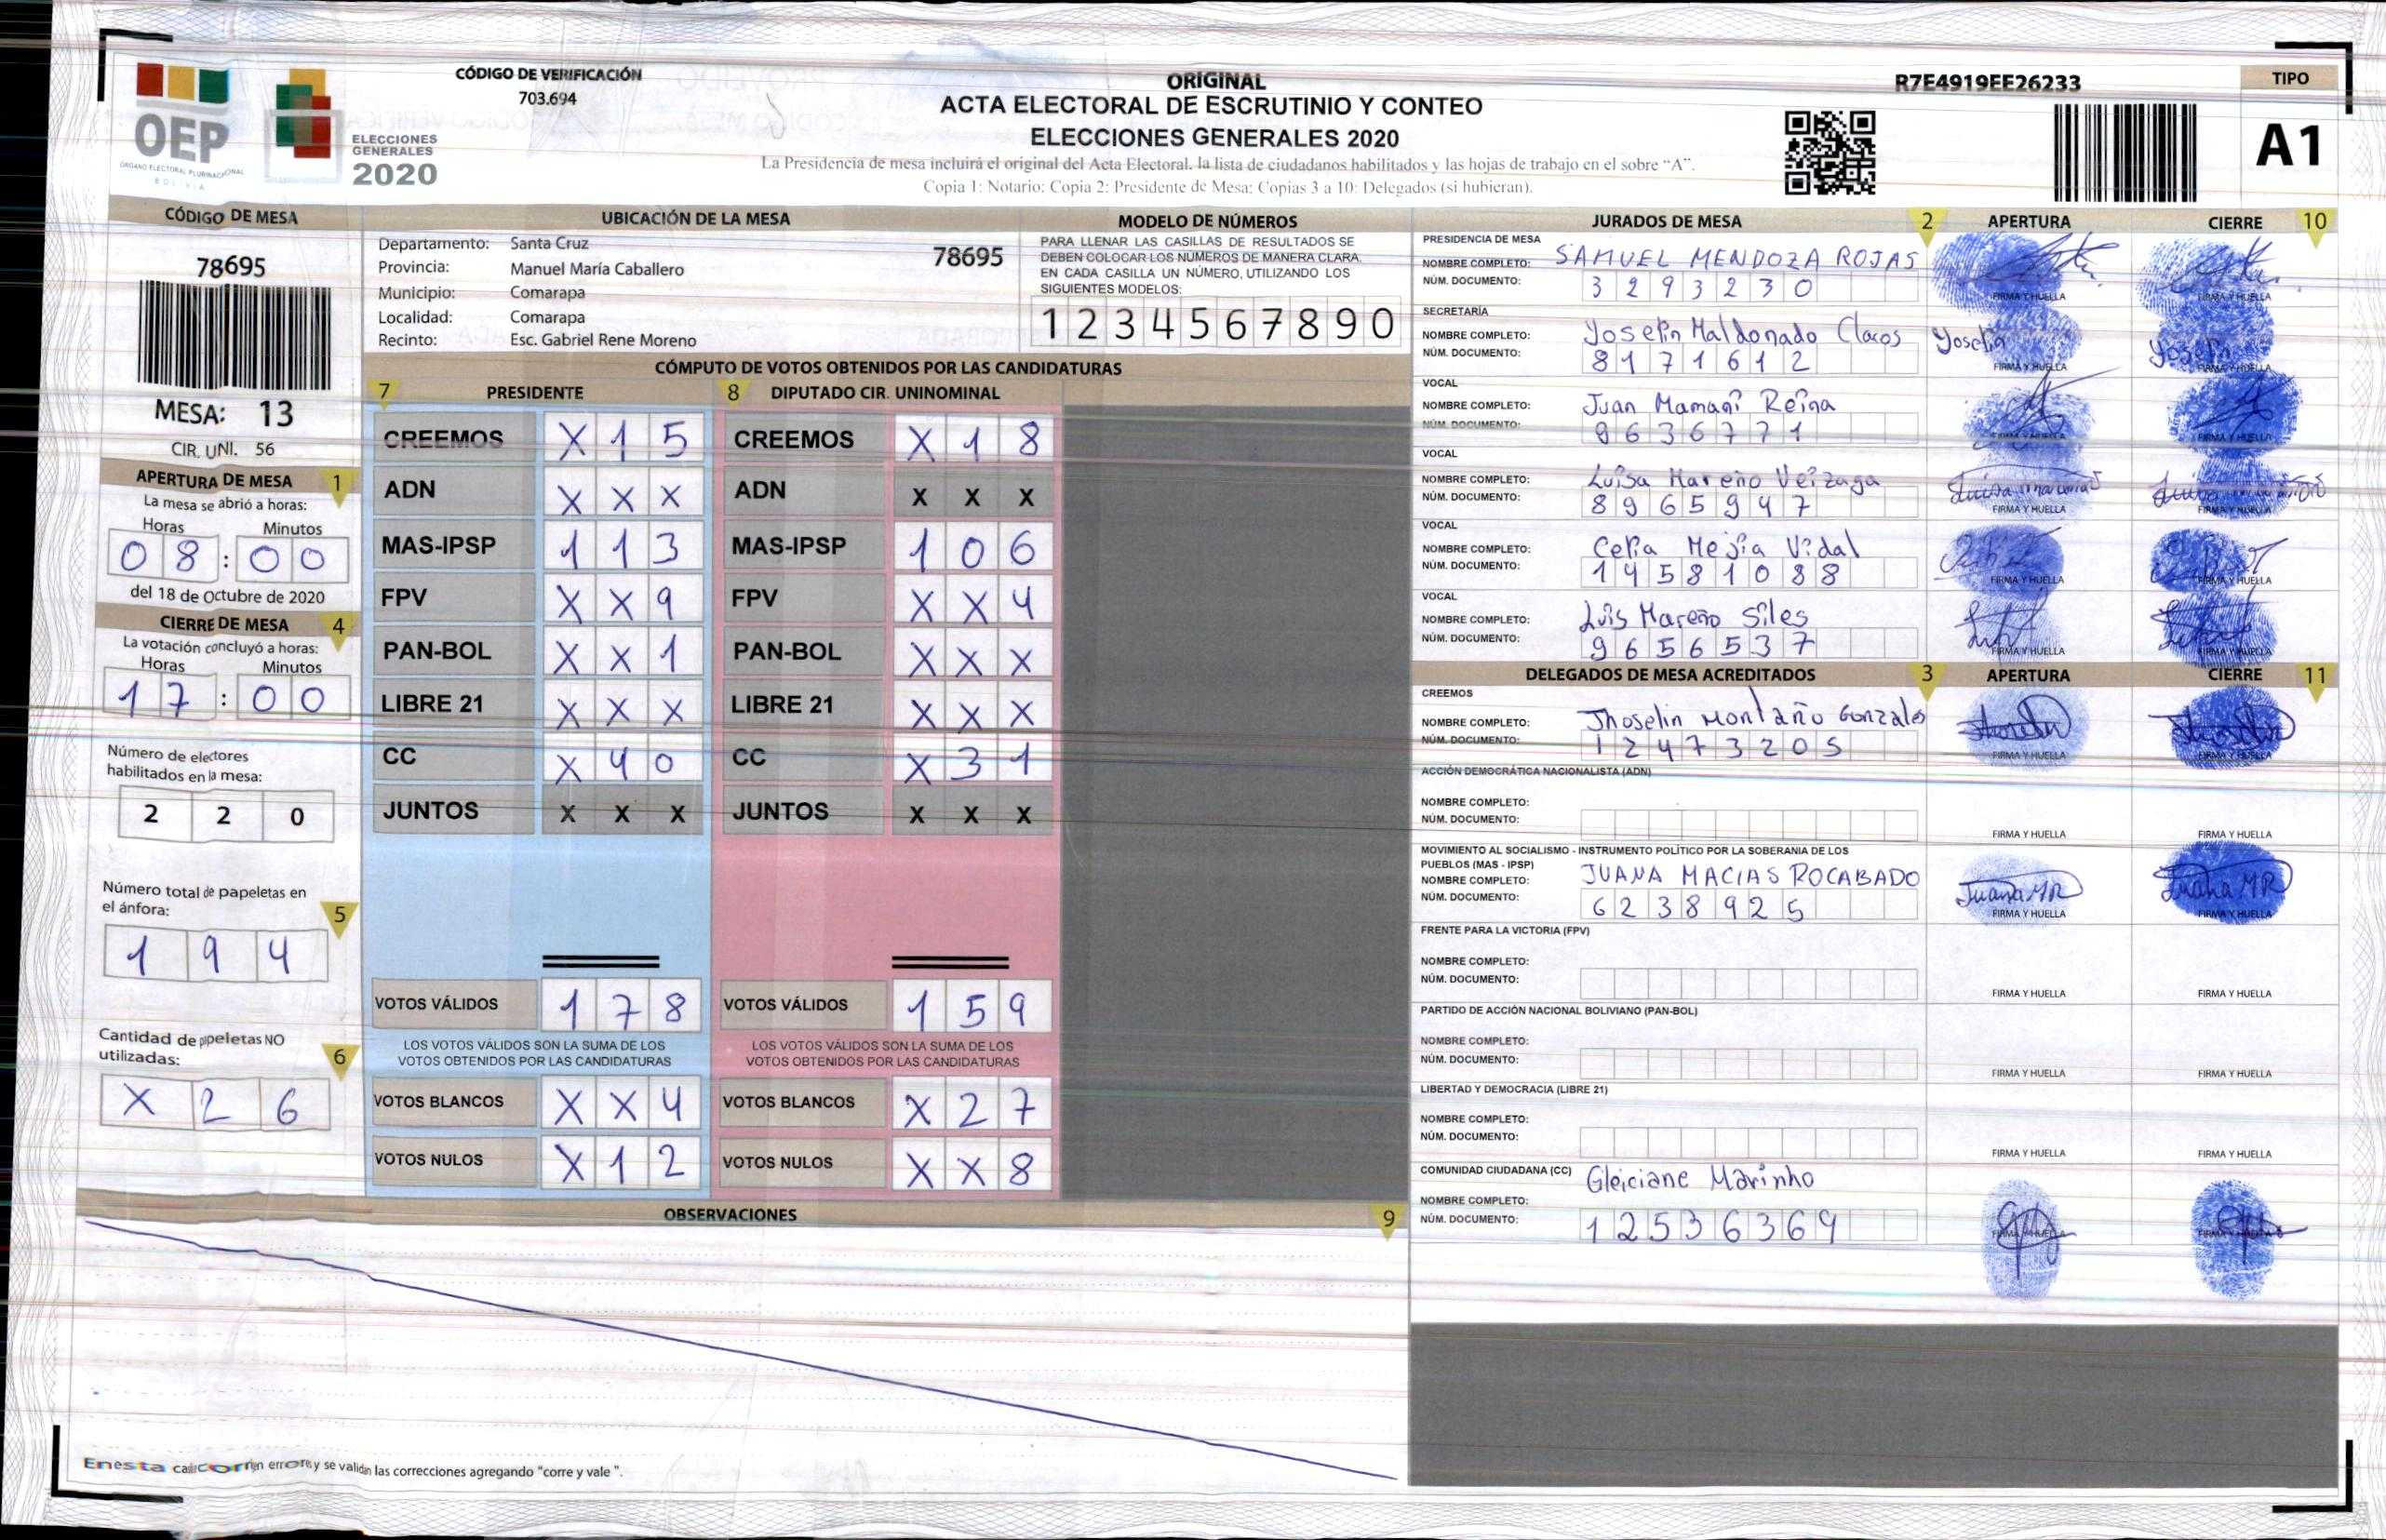 OEP
ÓRGANO ELECTORAL PLURINACIONAL
BOLIVIA
ELECCIONES
GENERALES
2020
CÓDIGO DE VERIFICACIÓN
703.694
ORIGINAL
ACTA ELECTORAL DE ESCRUTINIO Y CONTEO
ELECCIONES GENERALES 2020
La Presidencia de mesa incluirá el original del Acta Electoral, la lista de ciudadanos habilitados y las hojas de trabajo en el sobre "A".
Copia 1: Notario; Copia 2: Presidente de Mesa; Copias 3 a 10: Delegados (si hubieran).
R7E4919EE26233
TIPO
A1
CÓDIGO DE MESA
78695
MESA: 13
CIR. UNI. 56
APERTURA DE MESA 1
La mesa se abrió a horas:
Horas Minutos
08:00
del 18 de Octubre de 2020
CIERRE DE MESA 4
La votación concluyó a horas:
Horas Minutos
17:00
Número de electores
habilitados en la mesa:
2 2 0
Número total de papeletas en
el ánfora: 5
1 9 4
Cantidad de papeletas NO
utilizadas: 6
X 2 6
UBICACIÓN DE LA MESA
Departamento: Santa Cruz 78695
Provincia: Manuel María Caballero
Municipio: Comarapa
Localidad: Comarapa
Recinto: Esc. Gabriel Rene Moreno
MODELO DE NÚMEROS
PARA LLENAR LAS CASILLAS DE RESULTADOS SE
DEBEN COLOCAR LOS NÚMEROS DE MANERA CLARA,
EN CADA CASILLA UN NÚMERO, UTILIZANDO LOS
SIGUIENTES MODELOS:
1 2 3 4 5 6 7 8 9 0
CÓMPUTO DE VOTOS OBTENIDOS POR LAS CANDIDATURAS
7 PRESIDENTE 8 DIPUTADO CIR. UNINOMINAL
CREEMOS X 1 5 CREEMOS X 1 8
ADN X X X ADN X X X
MAS-IPSP 1 1 3 MAS-IPSP 1 0 6
FPV X X 9 FPV X X 4
PAN-BOL X X 1 PAN-BOL X X X
LIBRE 21 X X X LIBRE 21 X X X
CC X 4 0 CC X 3 1
JUNTOS X X X JUNTOS X X X
VOTOS VÁLIDOS 1 7 8 VOTOS VÁLIDOS 1 5 9
LOS VOTOS VÁLIDOS SON LA SUMA DE LOS LOS VOTOS VÁLIDOS SON LA SUMA DE LOS
VOTOS OBTENIDOS POR LAS CANDIDATURAS VOTOS OBTENIDOS POR LAS CANDIDATURAS
VOTOS BLANCOS X X 4 VOTOS BLANCOS X 2 7
VOTOS NULOS X 1 2 VOTOS NULOS X X 8
OBSERVACIONES 9
casi corrijen errores y se validan las correcciones agregando "corre y vale ".
JURADOS DE MESA 2 APERTURA CIERRE 10
PRESIDENCIA DE MESA
NOMBRE COMPLETO: SAMUEL MENDOZA ROJAS
NÚM. DOCUMENTO: 3293230 FIRMA Y HUELLA FIRMA Y HUELLA
SECRETARÍA
NOMBRE COMPLETO: Yoselin Maldonado Claros Yoselin Yoselin
NÚM. DOCUMENTO: 8171612 FIRMA Y HUELLA FIRMA Y HUELLA
VOCAL
NOMBRE COMPLETO: Juan Mamani Reina
NÚM. DOCUMENTO: 9636771 FIRMA Y HUELLA FIRMA Y HUELLA
VOCAL
NOMBRE COMPLETO: Luisa Mareño Veizaga
NÚM. DOCUMENTO: 8965947 FIRMA Y HUELLA FIRMA Y HUELLA
VOCAL
NOMBRE COMPLETO: Celia Mejia Vidal
NÚM. DOCUMENTO: 14581088 FIRMA Y HUELLA FIRMA Y HUELLA
VOCAL
NOMBRE COMPLETO: Luis Mareño Siles
NÚM. DOCUMENTO: 9656537 FIRMA Y HUELLA FIRMA Y HUELLA
DELEGADOS DE MESA ACREDITADOS 3 APERTURA CIERRE 11
CREEMOS
NOMBRE COMPLETO: Jhoselin Montaño Gonzales
NÚM. DOCUMENTO: 12473205 FIRMA Y HUELLA FIRMA Y HUELLA
ACCIÓN DEMOCRÁTICA NACIONALISTA (ADN)
NOMBRE COMPLETO:
NÚM. DOCUMENTO: FIRMA Y HUELLA FIRMA Y HUELLA
MOVIMIENTO AL SOCIALISMO - INSTRUMENTO POLÍTICO POR LA SOBERANIA DE LOS
PUEBLOS (MAS - IPSP)
NOMBRE COMPLETO: JUANA MACIAS ROCABADO Juana MR Juana MR
NÚM. DOCUMENTO: 6238925 FIRMA Y HUELLA FIRMA Y HUELLA
FRENTE PARA LA VICTORIA (FPV)
NOMBRE COMPLETO:
NÚM. DOCUMENTO: FIRMA Y HUELLA FIRMA Y HUELLA
PARTIDO DE ACCIÓN NACIONAL BOLIVIANO (PAN-BOL)
NOMBRE COMPLETO:
NÚM. DOCUMENTO: FIRMA Y HUELLA FIRMA Y HUELLA
LIBERTAD Y DEMOCRACIA (LIBRE 21)
NOMBRE COMPLETO:
NÚM. DOCUMENTO: FIRMA Y HUELLA FIRMA Y HUELLA
COMUNIDAD CIUDADANA (CC) Gleiciane Marinho
NOMBRE COMPLETO:
NÚM. DOCUMENTO: 12536369 FIRMA Y HUELLA FIRMA Y HUELLA